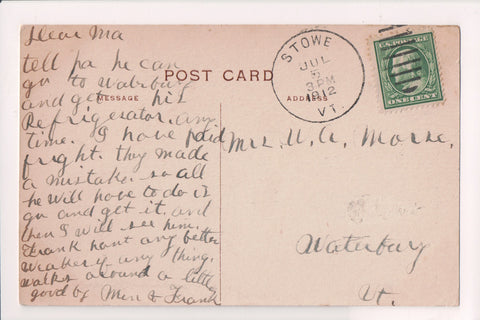 Dear Ma
tell pa he can
go to waterbury
and get his
Refrigerator any
time. I have paid
fright. thy made
a mistake. so all
he will have to do is
go and get it. and
then I will see him.
Frank hant any better
weaker if any thing.
walks around a little
good by Men & Frank
POST CARD
MESSAGE
ADDRESS
STOWE
JUL
5
3 PM
1912
VT.
U.S. POSTAGE
ONE CENT
Mrs. U. A. Morse.
Waterbury
Vt.